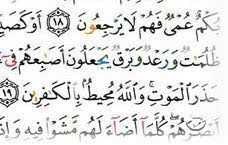 بُكْمٌ عُمْىٌ فَهُمْ لَا يَرْجِعُونَ ١٨ أَوْ كَصَيِّ
ظُلُمَٰتٌ وَرَعْدٌ وَبَرْقٌ يَجْعَلُونَ أَصَٰبِعَهُمْ فِى
حَذَرَ ٱلْمَوْتِ وَٱللَّهُ مُحِيطٌۢ بِٱلْكَٰفِرِينَ ١٩
أَبْصَٰرَهُمْ كُلَّمَآ أَضَآءَ لَهُم مَّشَوْا۟ فِيهِ وَإِذَا